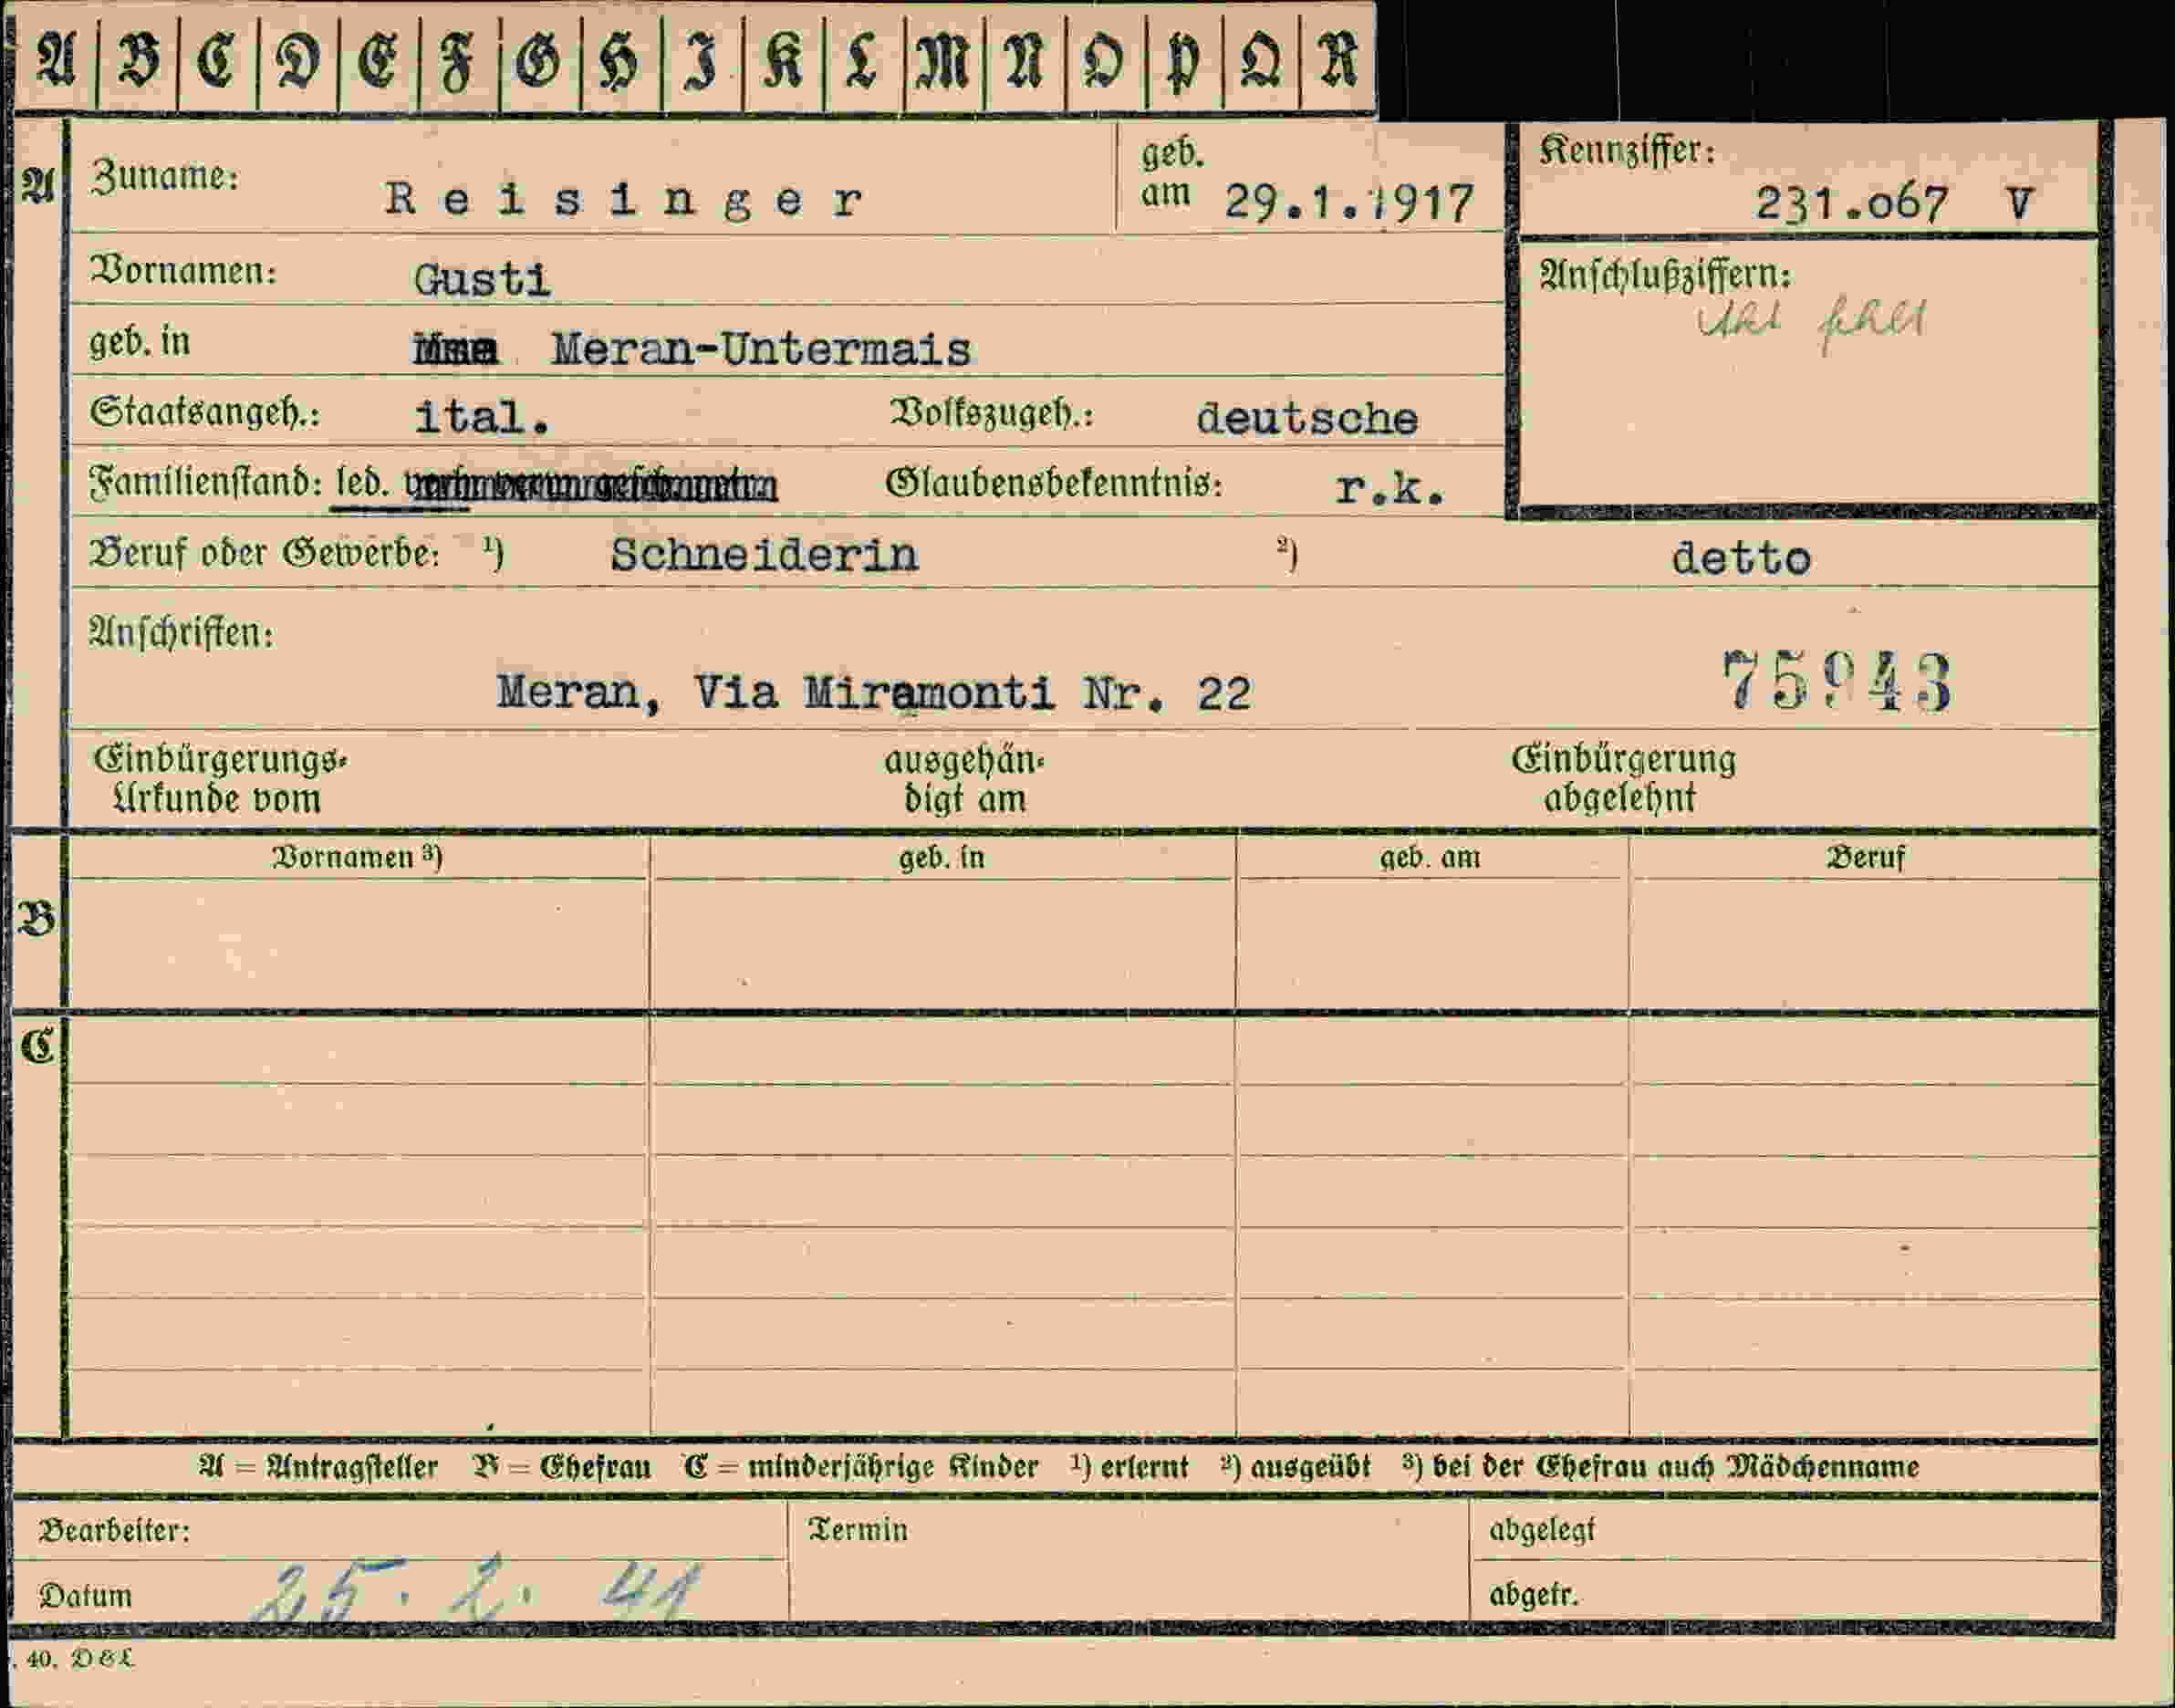 A B C D E F G H I K L M N O P Q R
A Zuname: Reisinger geb. am 29.1.1917 Kennziffer: 231.o67 V
Vornamen: Gusti Anschlußziffern:
Akt fehlt
geb. in Meran-Untermais
Staatsangeh.: ital. Volkszugeh.: deutsche
Familienstand: led. Glaubensbekenntnis: r.k.
Beruf oder Gewerbe: ¹) Schneiderin ²) detto
Anschriften:
Meran, Via Miramonti Nr. 22 75943
Einbürgerungs- ausgehän- Einbürgerung
Urkunde vom digt am abgelehnt
Vornamen ³) geb. in geb. am Beruf
B
C
A = Antragsteller B = Ehefrau C = minderjährige Kinder ¹) erlernt ²) ausgeübt ³) bei der Ehefrau auch Mädchenname
Bearbeiter: Termin abgelegt
Datum 25. 2. 41 abgetr.
. 40. DEL